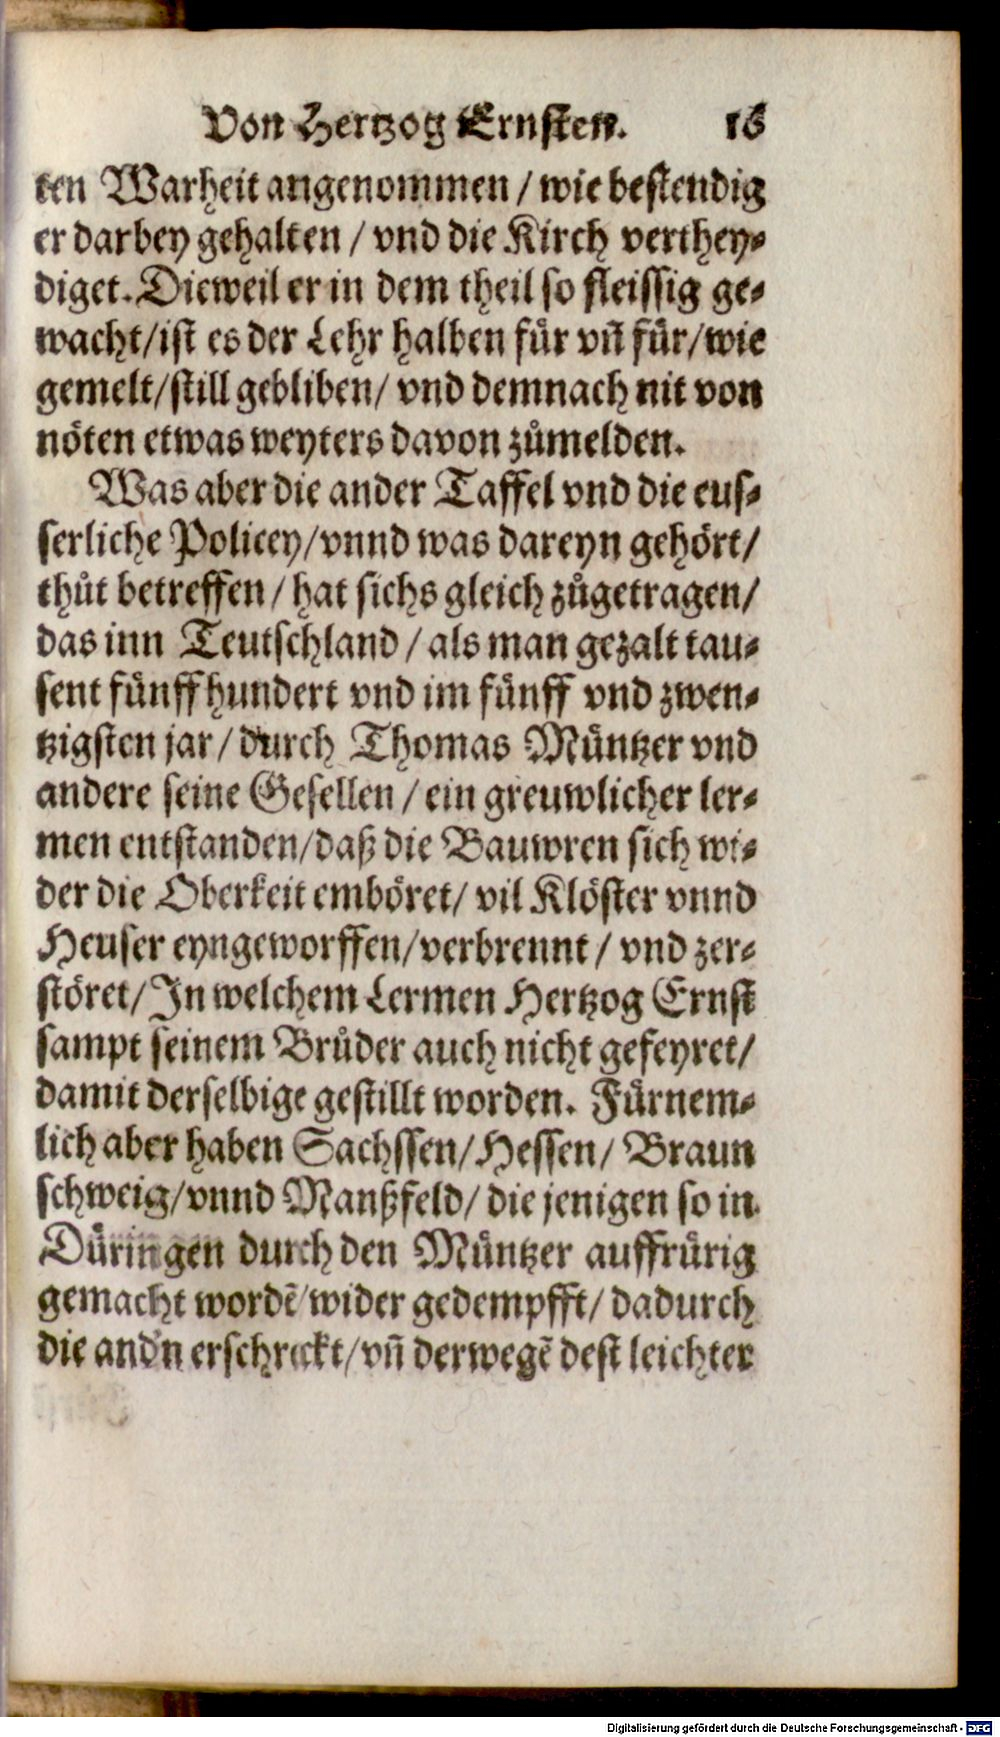 Von Hertzog Ernsten. 16
ten Warheit angenommen / wie bestendig
er darbey gehalten / vnd die Kirch verthey-
diget. Dieweil er in dem theil so fleissig ge-
wacht/ist es der Lehr halben fuͤr vñ fuͤr/wie
gemelt/still gebliben/ vnd demnach nit von
nöten etwas weyters davon zuͦmelden.
Was aber die ander Taffel vnd die eus-
serliche Policey/vnnd was dareyn gehört/
thuͦt betreffen / hat sichs gleich zuͦgetragen/
das inn Teutschland / als man gezalt tau-
sent fuͤnffhundert vnd im fuͤnff vnd zwen-
tzigsten jar / durch Thomas Muͤntzer vnd
andere seine Gesellen / ein greuwlicher ler-
men entstanden/daß die Bauwren sich wi-
der die Oberkeit emböret/ vil Klöster vnnd
Heuser eyngeworffen/verbrennt / vnd zer-
störet/ In welchem Lermen Hertzog Ernst
sampt seinem Bruͦder auch nicht gefeyret/
damit derselbige gestillt worden. Fuͤrnem-
lich aber haben Sachssen/Hessen/ Braun
schweig/vnnd Manßfeld/ die jenigen so in
Duͤringen durch den Muͤntzer auffruͤrig
gemacht wordẽ/wider gedempfft/ dadurch
die and'n erschreckt/vñ derwegẽ dest leichter
Digitalisierung gefördert durch die Deutsche Forschungsgemeinschaft - DFG